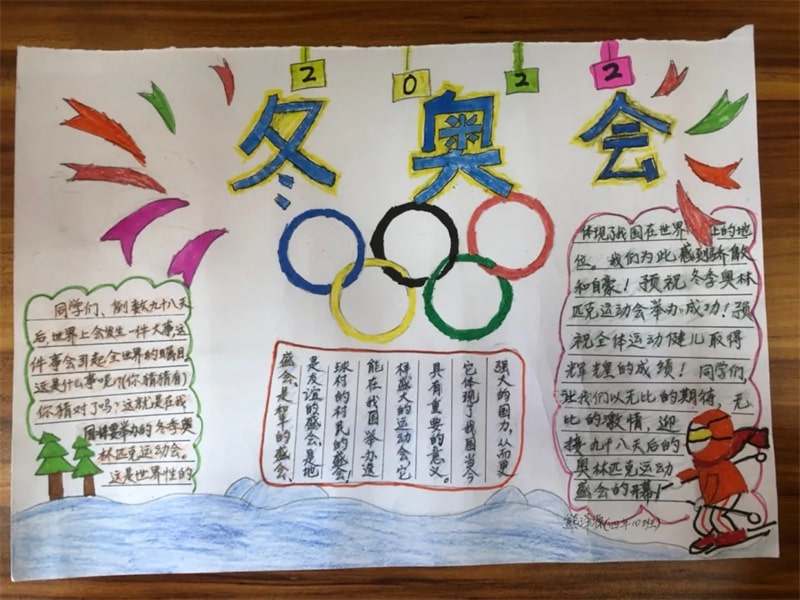 2 0 2 2
冬奥会
同学们、倒数九十八天
后世界上会发生一件大事这
件事会引起全世界的瞩目。
这是什么事呢?(你猜猜看)
你猜对了吗?这就是在我
国将要举办的冬季奥
林匹克运动会。
这是世界性的
盛会、是和平的盛会、
是友谊的盛会、是地
球村的村民的盛会!
能在我国举办这
样盛大的运动会,它
具有重要的意义。
它体现了我国当今
强大的国力,从而更
体现了我国在世界上的地
位。我们为此感到骄傲
和自豪!预祝冬季奥林
匹克运动会举办成功!预
祝全体运动健儿取得
辉煌的成绩!同学们,
让我们以无比的期待,无
比的激情,迎
接九十八天后的
奥林匹克运动
盛会的开幕!
(四年10班)